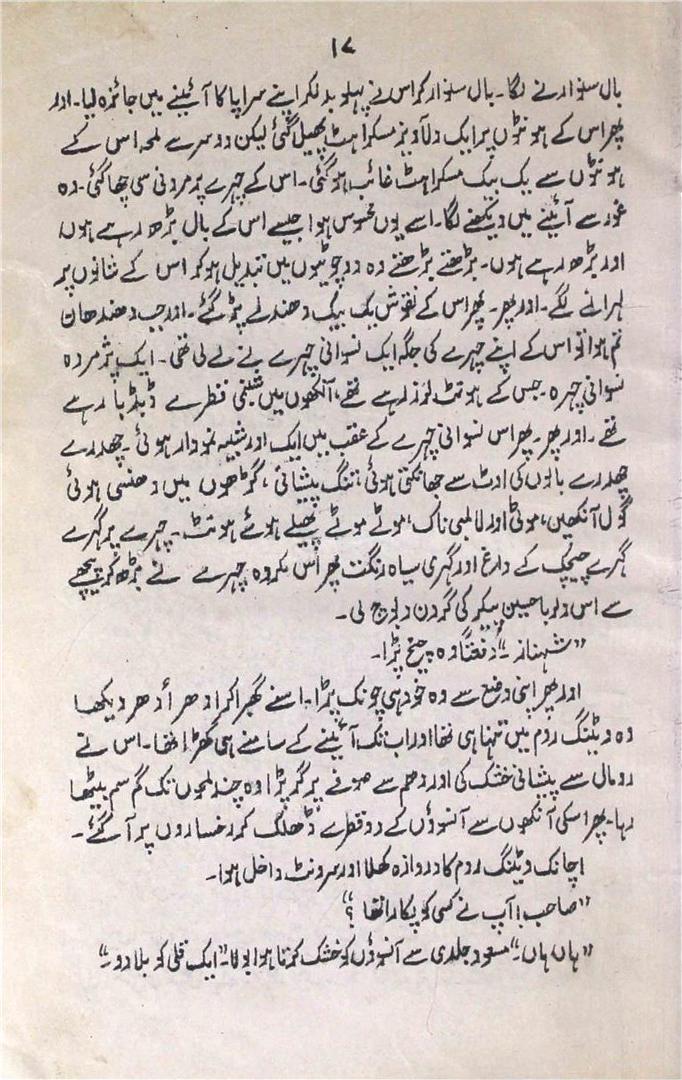 ۱۷
بال سنوارنے لگا۔ بال سنوار کر اس نے پہلو بدلکر اپنے سراپا کا آئینے میں جائزہ لیا۔ اور
پھر اس کے ہونٹوں پر ایک دلآویز مسکراہٹ پھیل گئی لیکن دوسرے لمحہ اس کے
ہونٹوں سے یک بیک مسکراہٹ غائب ہو گئی۔ اس کے چہرے پر مردنی سی چھا گئی۔ وہ
غور سے آئینے میں دیکھنے لگا۔ اسے یوں محسوس ہوا جیسے اس کے بال بڑھ رہے ہوں
اور بڑھ رہے ہوں۔ بڑھتے بڑھتے وہ دو چوٹیوں میں تبدیل ہو کر اس کے شانوں پر
لہرانے لگے۔ اور پھر۔ پھر اس کے نقوش یک بیک دھندلے پڑ گئے۔ اور جب دھندھان
تم ہوا تو اس کے اپنے چہرے کی جگہ ایک نسوانی چہرے نے لے لی تھی۔ ایک پژمردہ
نسوانی چہرہ۔ جس کے ہونٹ لرز رہے تھے، آنکھوں میں شبنمی قطرے ڈبڈبا رہے
تھے۔ اور پھر۔ پھر اس نسوانی چہرے کے عقب میں ایک اور شبیہ نمودار ہوئی۔ چھدرے
چھدرے بالوں کی اوٹ سے جھانکتی ہوئی، تنگ پیشانی، گڑھوں میں دھنسی ہوئی
گول آنکھیں، موٹی اور لانبی ناک، موٹے موٹے پھیلے ہوئے ہونٹ۔ چہرے پر گہرے
گہرے چیچک کے داغ اور گہری سیاہ رنگت پھر اس مکروہ چہرے نے بڑھ کر پیچھے
سے اس دلربا حسین پیکر کی گردن دبوچ لی۔
”شہناز۔“ دفعتاً وہ چیخ پڑا۔
اور پھر اپنی وضع سے وہ خود ہی چونک پڑا۔ اسنے گھبرا کر ادھر اُدھر دیکھا
وہ ویٹنگ روم میں تنہا ہی تھا اور اب تک آئینے کے سامنے ہی کھڑا تھا۔ اس نے
رومال سے پیشانی خشک کی اور دھم سے صوفے پر گر پڑا وہ چند لمحوں تک گم سم بیٹھا
رہا۔ پھر اسکی آنکھوں سے آنسوؤں کے دو قطرے ڈھلک کر رخساروں پر آ گئے۔
اچانک ویٹنگ روم کا دروازہ کھلا اور سرونٹ داخل ہوا۔
”صاحب! آپ نے کسی کو پکارا تھا؟“
”ہاں ہاں۔“ مسعود جلدی سے آنسوؤں کو خشک کرتا ہوا بولا۔ ”ایک قلی کو بلا دو۔“